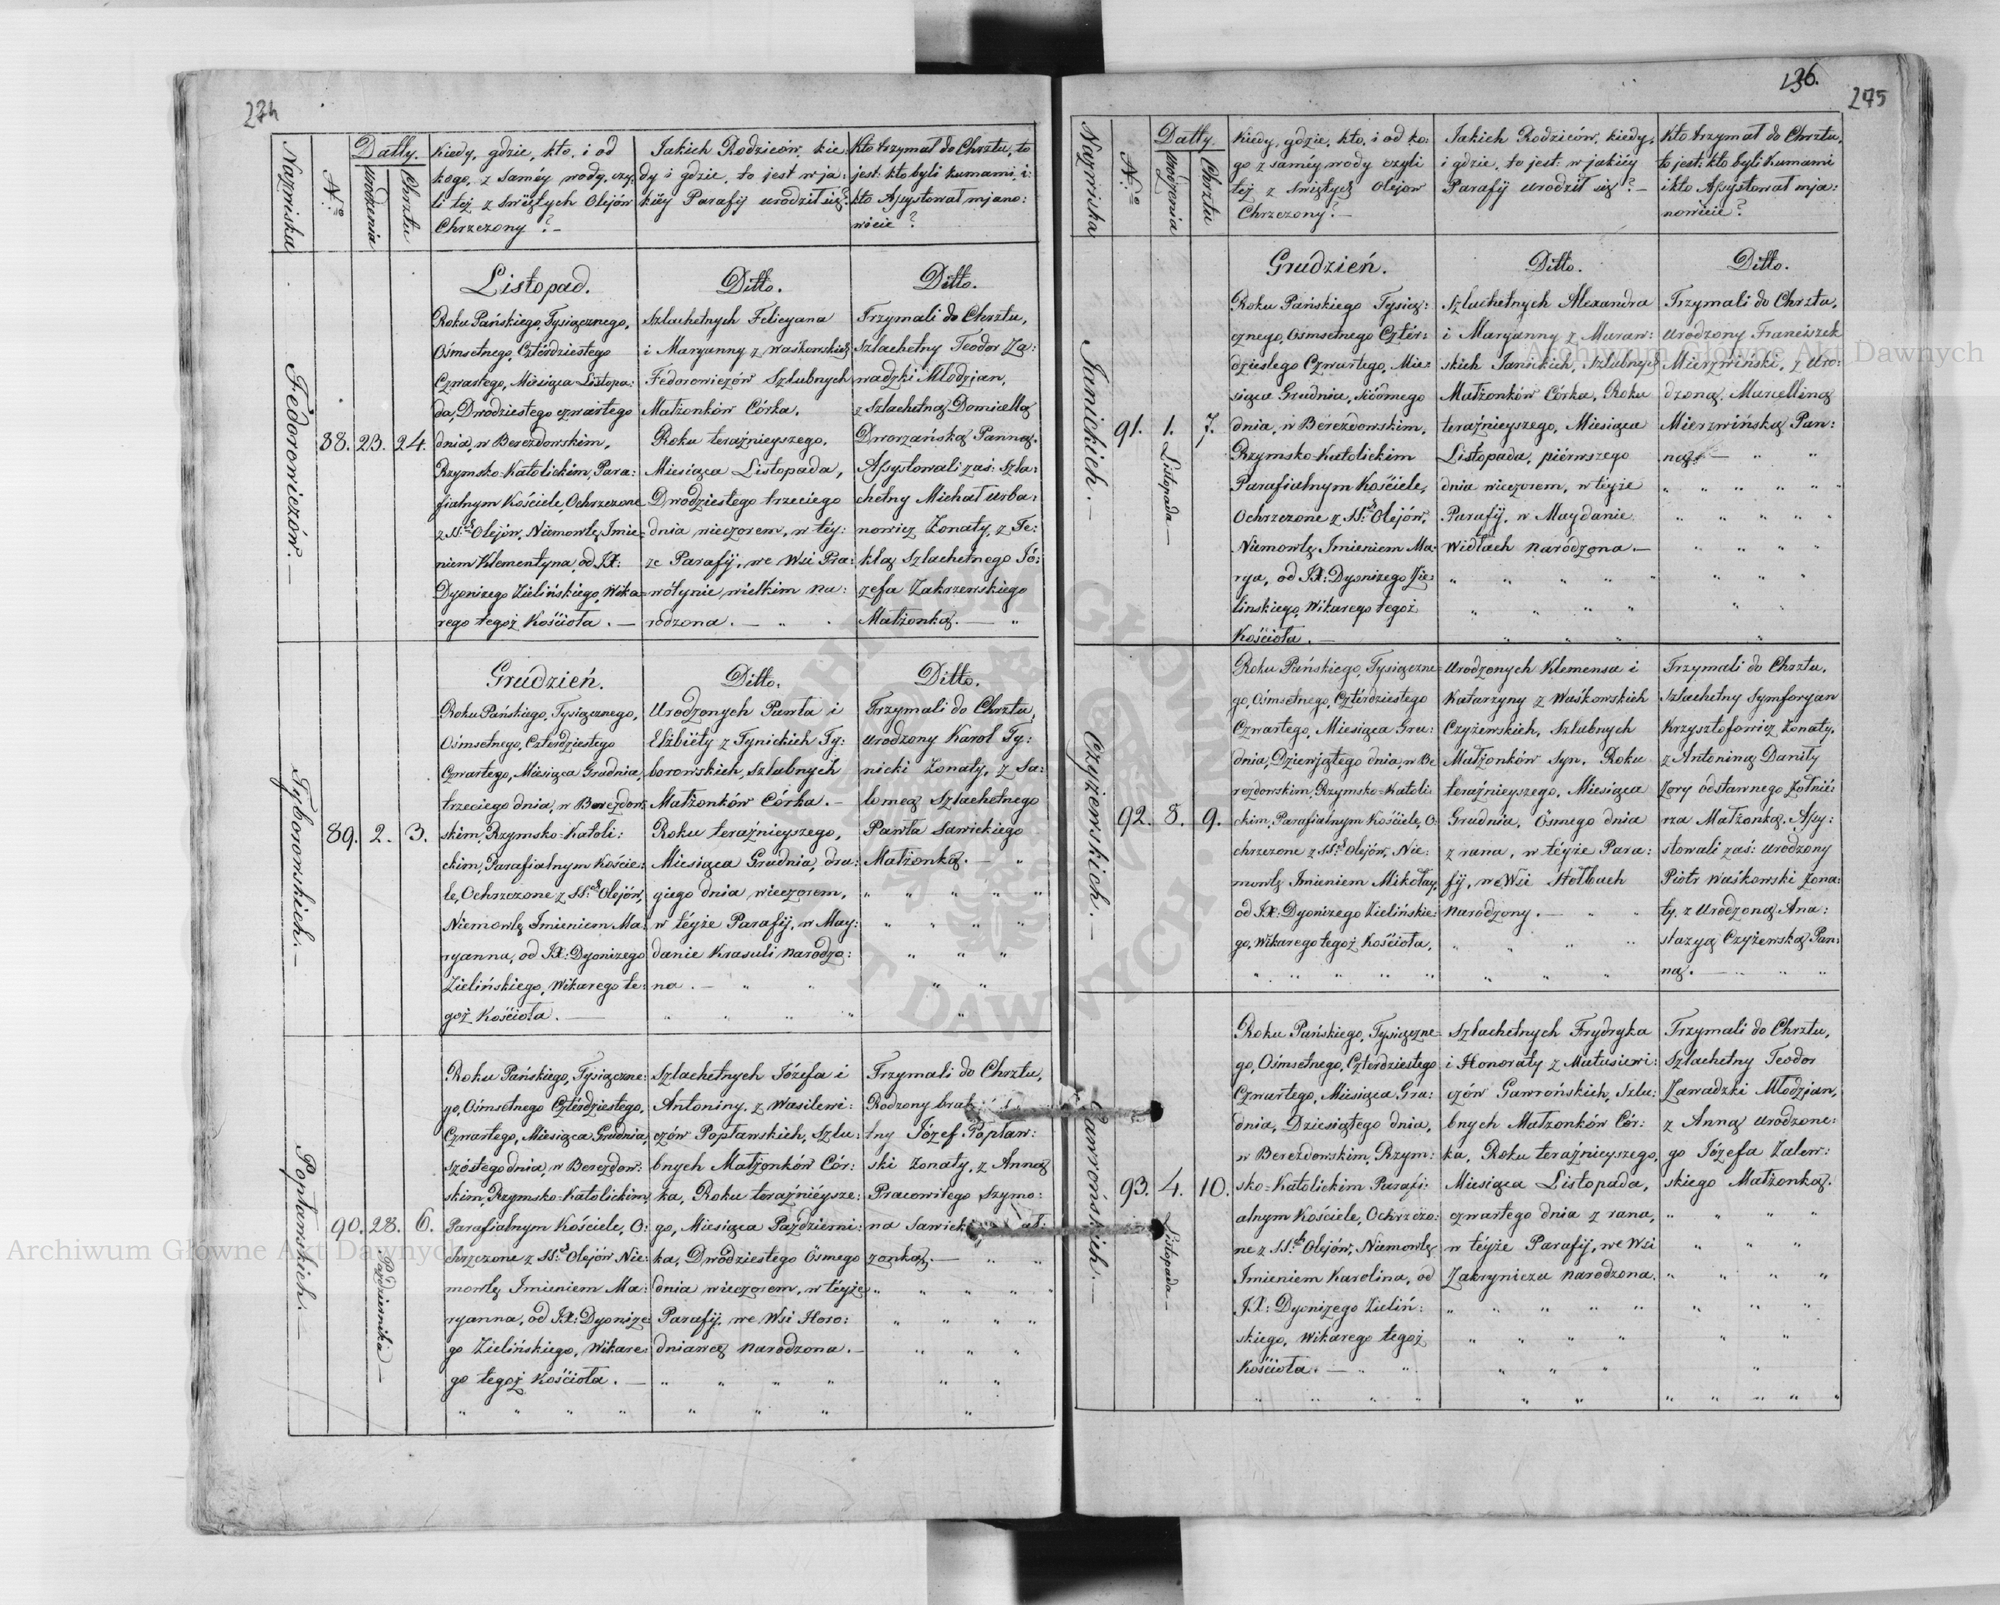 274
Nazwiska
N.ro
Datty.
Urodzenia
Chrztu
Kiedy, gdzie, kto, i od
kogo, z saméy wody, czy:
li téż z Swiętych Olejów
Chrzczony? –
Jakich Rodziców, kie:
dy i gdzie, to jest w ja:
kiéy Parafij urodził się?
Kto trzymał do Chrztu, to
jest: kto byli kumami, i:
kto Assystował mjano:
wicie?
Fedorowiczów. –
88. 23. 24.
Listopad.
Roku Pańskiego, Tysiącznego,
Ośmsetnego, Cztérdziestego
Czwartego, Miesiąca Listopa:
da, Dwódziestego czwartego
dnia, w Berezdowskim,
Rzymsko-Katolickim, Para:
fialnym Kościele, Ochrzczone
z SS: Olejów, Niemowlę Imie:
niem Klementyna, od JX:
Dyonizego Zielińskiego, Wika:
rego tegoż Kościoła. –
Ditto.
Szlachetnych Felicyana
i Maryanny z Waśkowskich
Fedorowiczów Szlubnych
Małżonków Córka,
Roku teraźnieyszego,
Miesiąca Listopada,
Dwódziestego trzeciego
dnia wieczorem, w téy:
że Parafij, we Wsi Pra:
wołynie wielkim na:
rodzona. – " "
Ditto.
Trzymali do Chrztu,
Szlachetny Teódor Za:
wadzki Młodzian,
z Szlachetną Domicellą
Dworzańską Panną.
Assystowali zaś: Szla:
chetny Michał Urba:
nowicz Żonaty, z Te:
klą Szlachetnego Jó:
zefa Zakrzewskiego
Małżonką. – "
Tyborowskich. –
89. 2. 3.
Grudzień.
Roku Pańskiego, Tysiącznego,
Ośmsetnego, Cztérdziestego
Czwartego, Miesiąca Grudnia,
trzeciego dnia, w Berezdow:
skim, Rzymsko-Katoli:
ckim, Parafialnym Koście:
le, Ochrzczone z SS: Olejów,
Niemowlę Imieniem Ma:
ryanna, od JX: Dyonizego
Zielińskiego, Wikarego te:
goż Kościoła. –
Ditto.
Urodzonych Pawła i
Elżbiéty z Tynickich Ty:
borowskich, Szlubnych
Małżonków Córka. –
Roku teraźnieyszego,
Miesiąca Grudnia, dru:
giego dnia wieczorem,
w téyże Parafij, w May:
danie Krasuli narodzo:
na. – " "
" " " "
Ditto.
Trzymali do Chrztu,
Urodzony Karol Ty:
nicki Żonaty, z Sa:
lomeą Szlachetnego
Pawła Sawickiego
Małżonką. – "
" " " " "
" " " "
" " "
" "
"
Popławskich. –
90. 28. 6.
Października –
Roku Pańskiego, Tysiączne:
go, Ośmsetnego Cztérdziestego,
Czwartego, Miesiąca Grudnia,
szóstego dnia, w Berezdow:
skim, Rzymsko-Katolickim,
Parafialnym Kościele, O:
chrzczone z SS: Olejów, Nie:
mowlę Imieniem Ma:
ryanna, od JX: Dyonize
go Zielińskiego, Wikare:
go tegoż Kościoła. –
" " " "
Szlachetnych Józefa i
Antoniny, z Wasilewi:
czów Popławskich, Szlu:
bnych Małżonków Cór:
ka, Roku teraźniéysze:
go, Miesiąca Październi:
ka, Dwódziestego Ósmego
dnia wieczorem, w téyże
Parafij, we Wsi Horo:
dniawcą narodzona. –
" " " "
" " "
Trzymali do Chrztu,
Rodzony brat
tny Józef Popław:
ski Żonaty, z Anną
Pracowitego Szymo:
na Sawick
żonką. – " "
" " " " "
" " " "
" " "
" "
"
136.
275
Nazwiska
N.ro
Datty.
Urodzenia
Chrztu
Kiedy, gdzie, kto, i od ko:
go z saméy wody czyli
téż z świętych Olejów
Chrzczony? –
Jakich Rodziców, kiedy,
i gdzie, to jest: w jakiéy
Parafij urodził się? –
Kto trzymał do Chrztu,
to jest: kto byli Kumami
i kto Assystował mja:
nowicie?
Janickich. –
91. 1. 7.
Listopada –
Grudzień.
Roku Pańskiego Tysią:
cznego, Ośmsetnego Cztér:
dziestego Czwartego, Mie:
siąca Grudnia, siódmego
dnia, w Berezdowskim,
Rzymsko-Katolickim
Parafialnym Kościele,
Ochrzczone z SS: Olejów,
Niemowlę Imieniem Ma:
rya, od JX: Dyonizego Zie:
lińskiego, Wikarego tegoż
Kościoła. –
Ditto.
Szlachetnych Alexandra
i Maryanny z Muraw:
skich Janickich, Szlubnych
Małżonków Córka, Roku
teraźnieyszego, Miesiąca
Listopada, piérwszego
dnia wieczorem, w téyże
Parafij, w Maydanie
Widłach narodzona. –
" " " " "
" " " "
" " "
Ditto.
Trzymali do Chrztu,
Urodzony Franciszek
Mierzwiński, z Uro:
dzoną Marcelliną
Mierzwińską Pan:
ną. – " "
" " " " "
" " " "
" " " "
" " "
" "
"
Czyżewskich. –
92. 8. 9.
Roku Pańskiego, Tysiączne:
go, Ośmsetnego, Cztérdziestego
Czwartego, Miesiąca Gru:
dnia, Dziewjątego dnia, w Be
rezdowskim, Rzymsko-Katoli:
ckim, Parafialnym Kościele, O:
chrzczone z SS: Olejów, Nie:
mowlę Imieniem Mikołay,
od JX: Dyonizego Zielińskie:
go, Wikarego tegoż Kościoła,
" " " " "
Urodzonych Klemensa i
Katarzyny z Waśkowskich
Czyżewskich, Szlubnych
Małżonków Syn, Roku
teraźnieyszego, Miesiąca
Grudnia, Ósmego dnia
z rana, w téyże Para:
fij, we Wsi Stołbach
narodzony. – " "
" " " "
" " "
Trzymali do Chrztu,
Szlachetny Symforyan
Krzysztofowicz Żonaty,
z Antoniną Daniły
Zory odstawnego Żołnié:
rza Małżonką. Assy:
stowali zaś: Urodzony
Piotr Waśkowski Żona:
ty, z Urodzoną Ana:
stazyą Czyżewską Pan:
ną. – " " "
Gawrońskich. –
93. 4. 10.
Listopada –
Roku Pańskiego, Tysiączne:
go, Ośmsetnego, Cztérdziestego
Czwartego, Miesiąca Gru:
dnia, Dziesiątego dnia,
w Berezdowskim, Rzym:
sko-Katolickim Parafi:
alnym Kościele, Ochrzczo:
ne z SS: Olejów, Niemowlę
Imieniem Karolina, od
JX: Dyonizego Zieliń:
skiego, Wikarego tegoż
Kościoła. – " "
" " " "
Szlachetnych Frydryka
i Honoraty z Matusiewi:
czów Gawrońskich, Szlu:
bnych Małżonków Cór:
ka, Roku teraźnieyszego,
Miesiąca Listopada,
czwartego dnia z rana,
w téyże Parafij, we Wsi
Zakryniczu narodzona.
" " " " "
" " " "
" " "
" "
Trzymali do Chrztu,
Szlachetny Teodor
Zawadzki Młodzian,
z Anną Urodzone:
go Józefa Zalew:
skiego Małżonką.
" " "
" " "
" " " "
" " "
" "
"
" " " " "
Archiwum Główne Akt Dawnych
Archiwum Główne Akt Dawnych
ARCHIWUM GŁÓWNE AKT DAWNYCH